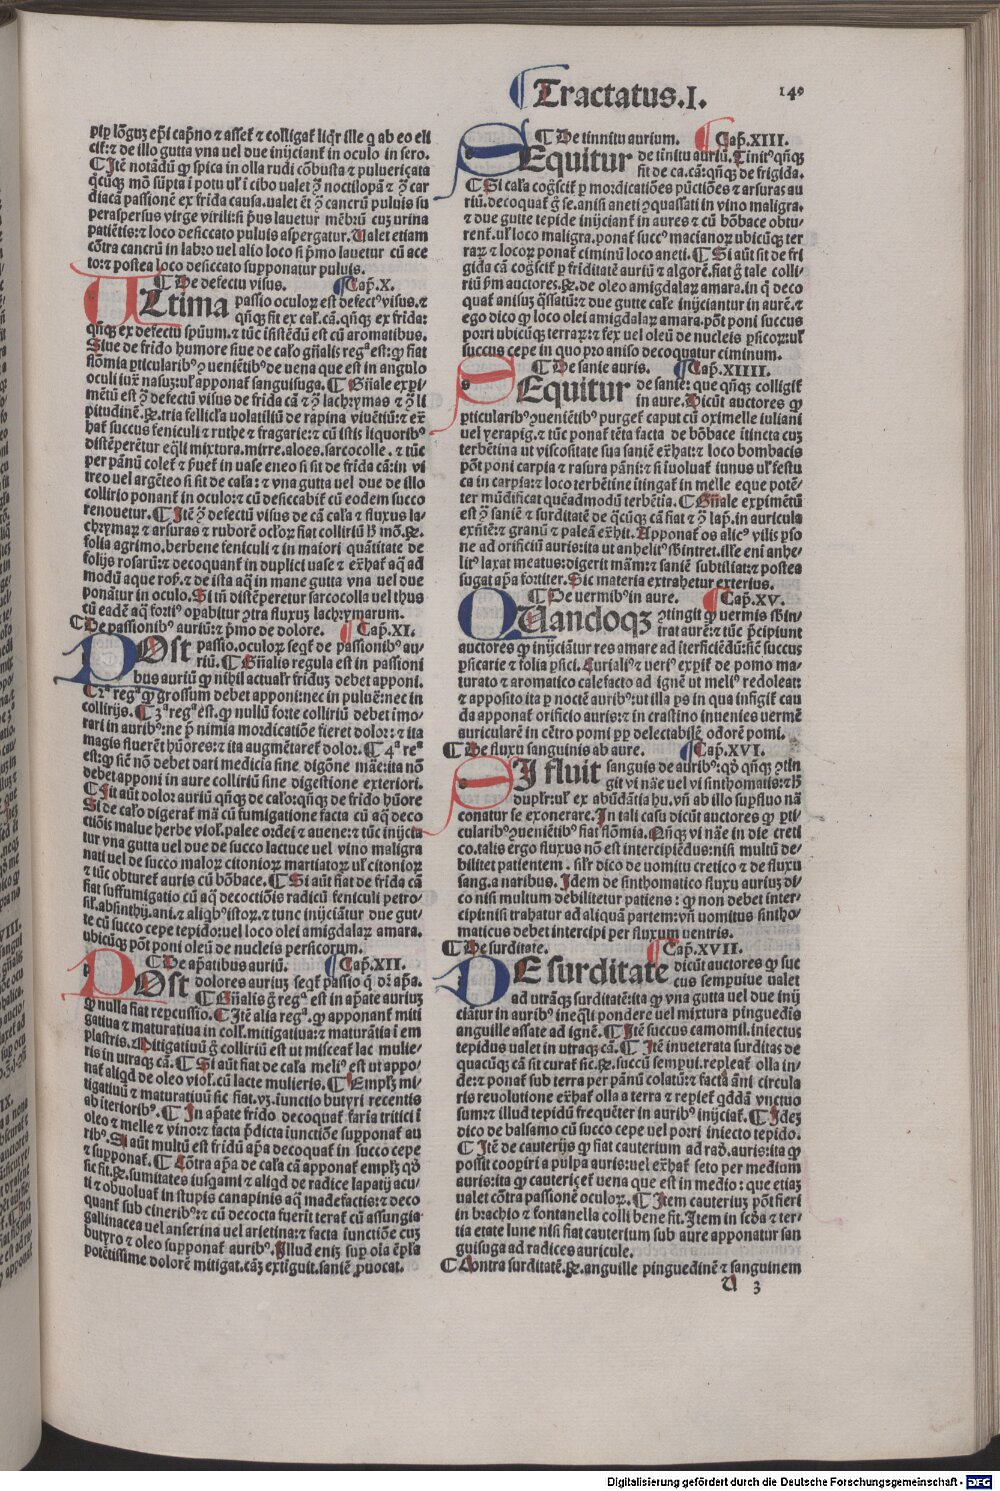 Tractatus.I.
149
pip lōguȝ ep̄i cap̄no ⁊ asset̄ ⁊ colligat̄ liq̄r ille q ab eo eli
cit̄:⁊ de illo gutta vna uel due iniȷciant̄ in oculo in sero.
¶ Itē notādū ꝙ spica in olla rudi cōbusta ⁊ pulueriçata
diacā passionē ex frida causa.ualet ēt ꝯ̄ cancrū puluis su
peraspersus virge virili:si p̄us lauetur mēbrū cuȝ urina
patiētis:⁊ loco desiccato puluis aspergatur.Ualet etiam
cōtra cancrū in labro vel alio loco si p̄mo lauetur cū ace
to:⁊ postea loco desiccato supponatur puluis.
¶ De defectu visus. ¶ Cap̄.X.
Ltima passio oculoꝝ est defectꝰ visus.⁊
qn̄qȝ fit ex cal̄.cā.qn̄qȝ ex frida:
qn̄qȝ ex defectu spūum.⁊ tūc īsistēdū est cū aromatibus.
Siue de frido humore siue de cal̄o gn̄alis regᵃ est:ꝙ fiat
flōmia ꝑticularibꝰ ꝯueniētibꝰ de uena que est in angulo
oculi iux̄ nasuȝ:ul̄ apponat̄ sanguisuga. ¶ Gn̄ale expi
mētū est ꝯ̄ defectū visus de frida cā ⁊ ꝯ̄ lachrymas ⁊ ꝯ̄ li
pitudinē.℞.tria fellicl̄a uolatiliū de rapina viuētiū:⁊ ex̄
hat̄ succus feniculi ⁊ ruthe ⁊ fragarie:⁊ cū istis liquoribꝰ
distēperētur eq̄li mixtura.mirre.aloes.sarcocolle.⁊ tūc
per pānū colet̄ ⁊ p̄uet̄ in uase eneo si sit de frida cā:in vi
treo uel argēteo si sit de cal̄a:⁊ vna gutta uel due de illo
collirio ponant̄ in oculo:⁊ cū desiccabit̄ cū eodem succo
renouetur.¶ Itē ꝯ̄ defectū visus de cā cal̄a ⁊ fluxus la-
chrymaꝝ ⁊ arsuras ⁊ ruborē ocl̄oꝝ fiat colliriū h̄ mō.℞.
folia agrimo.berbene feniculi ⁊ in maiori quātitate de
folijs rosarū:⁊ decoquant̄ in duplici uase ⁊ ex̄hat̄ aq̄ ad
modū aque ros̄.⁊ de ista aq̄ in mane gutta vna uel due
ponātur in oculo.Si m̄ distēperetur sarcocolla uel thus
cū eadē aq̄ fortiꝰ opabitur ꝯtra fluxuȝ lachrymarum.
¶ De passionibꝰ auriū:⁊ p̄mo de dolore. ¶ Cap̄.XI.
POst passio.oculoꝝ seqt̄ de passionibꝰ au-
riū. ¶ Gn̄alis regula est in passioni
bus auriū ꝙ nihil actual̄r friduȝ debet apponi.
¶ 2ᵃ regᵃ ꝙ grossum debet apponi:nec in puluē:nec in
collirijs.¶ 3ᵃ regᵃ ēst.ꝙ nullū forte colliriū debet īmo-
rari in auribꝰ:ne p̄ nimia mordicatiōe fieret dolor:⁊ ita
magis fluerēt hūores:⁊ ita augmētaret̄ dolor.¶ 4ᵃ reᵃ
est:ꝙ sic̄ nō debet dari medicia sine digōne māe:ita nō
debet apponi in aure colliriū sine digestione exteriori.
¶ Fit aūt dolor auriū qn̄qȝ de cal̄o:qn̄qȝ de frido hūore
Si de cal̄o digerat̄ mā cū fumigatione facta cū aq̄ deco
ctiōis malue herbe viol̄.palee ordei ⁊ auene:⁊ tūc iniȷcia
tur vna gutta uel due de succo lactuce uel vino maligra
nati uel de succo maloꝝ citonioꝝ martiatoꝝ ul̄ citonioꝝ
⁊ tūc obturet̄ auris cū bōbace.¶ Si aūt fiat de frida cā
fiat suffumigatio cū aq̄ decoctiōis radicū feniculi petro-
sil̄.absinthij.ani.⁊ aliqbꝰ istoꝝ.⁊ tunc iniȷciātur due gut-
te cū succo cepe tepido:uel loco olei amigdalaꝝ amara.
ubicūqȝ pōt poni oleū de nucleis persicorum.
¶ De ap̄atibus auriū. ¶ Cap̄.XII.
POst dolores auriuȝ seqt̄ passio q̄ dr̄ ap̄a.
¶ Gn̄alis ḡ regᵃ est in ap̄ate auriuȝ
ꝙ nulla fiat repcussio.¶ Itē alia regᵃ.ꝙ apponant̄ miti
gatiua ⁊ maturatiua in coll̄.mitigatiua:⁊ maturātia ī em
plastris.Mitigatiuū ḡ colliriū est ut misceat̄ lac mulie-
ris in utraqȝ cā.¶ Si aūt fiat de cal̄a meliꝰ est ut appo-
nat̄ aliqd de oleo viol̄.cū lacte mulieris.¶ Empl̄ȝ mi-
tigatiuū ⁊ maturatiuū sic fiat.vȝ.iunctio butyri recentis
ab iterioribꝰ.¶ In ap̄ate frido decoquat̄ faria tritici ī
oleo ⁊ melle ⁊ vino:⁊ facta p̄dicta iunctiōe supponat̄ au
ribꝰ.Si aūt multū est fridū ap̄a decoquat̄ in succo cepe
⁊ supponat̄.¶ Cōtra ap̄a de cal̄a cā apponat̄ empl̄ȝ qd̄
sic fit.℞.sumitates iusqami ⁊ aliqd de radice lapatij acu/
ti ⁊ obuoluat̄ in stupis canapinis aq̄ madefactis:⁊ deco
quant̄ sub cineribꝰ:⁊ cū decocta fuerit terat̄ cū assungia
gallinacea vel anserina uel arietina:⁊ facta iunctiōe cuȝ
butyro ⁊ oleo supponat̄ auribꝰ.Illud eniȝ suꝑ oīa ēpl̄a
potētissime dolorē mitigat.cāȝ extiguit.saniē ꝓuocat.
¶ De tinnitu aurium. ¶ Cap̄.XIII.
SEquitur de tinitu auriū.Tinitꝰ qn̄qȝ
fit de ca.cā:qn̄qȝ de frigida.
¶ Si cal̄a coḡscit̄ ꝑ mordicatiōes pūctiōes ⁊ arsuras au
riū.decoquat̄ ḡ se.anisi aneti ꝯquassati in vino maligra.
⁊ due gutte tepide iniȷciant̄ in aures ⁊ cū bōbace obtu-
rent̄.ul̄ loco maligra.ponat̄ succꝰ macianoꝝ ubicūqȝ ter
raꝝ ⁊ locoꝝ ponat̄ ciminū loco aneti.¶ Si aūt sit de fri
gida cā coḡscit̄ ꝑ friditatē auriū ⁊ algorē.fiat ḡ tale colli-
riū p̄m auctores.℞.de oleo amigdalaꝝ amara.in q̄ deco
quat̄ anisuȝ q̄ssatū:⁊ due gutte cal̄e iniȷciantur in aurē.⁊
ego dico ꝙ loco olei amigdalaꝝ amara.pōt poni succus
porri ubicūqȝ terraꝝ:⁊ fex vel oleū de nucleis ꝑsicoꝝ:ul̄
succus cepe in quo pro aniso decoquatur ciminum.
¶ De sanie auris. ¶ Cap̄.XIIII.
SEquitur de sanie:que qn̄qȝ colligit̄
in aure.Dicūt auctores ꝙ
ꝑticularibꝰ ꝯueniētibꝰ purget̄ caput cū oximelle iuliani
uel yerapig.⁊ tūc ponat̄ tēta facta de bōbace ītincta cuȝ
terbētina ut viscositate sua saniē ex̄hat:⁊ loco bombacis
pōt poni carpia ⁊ rasura pāni:⁊ si īuoluat̄ iunus ul̄ festu
ca in carpia:⁊ loco terbētine ītingat̄ in melle eque potē-
ter mūdificat quēadmodū terbētia.¶ Gn̄ale expimētū
est ꝯ̄ saniē ⁊ surditatē de q̄cūqȝ cā fiat ⁊ ꝯ̄ lap̄.in auricula
exn̄tē:⁊ granū ⁊ paleā ex̄hit.Apponat̄ os alicꝰ vilis ꝑso
ne ad orificiū auris:ita ut anhelitꝰ sbintret.ille eni anhe-
litꝰ laxat meatus:digerit mām:⁊ saniē subtiliat:⁊ postea
sugat ap̄a fortiter.Sic materia extrahetur exterius.
¶ De vermibꝰ in aure. ¶ Cap̄.XV.
QUandoqȝ ꝯtingit ꝙ vermis sbin-
trat aurē:⁊ tūc p̄cipiunt
auctores ꝙ iniȷciātur res amare ad iterficiēdū:sic̄ succus
ꝑsicarie ⁊ folia ꝑsici.Curialiꝰ ⁊ veriꝰ expit̄ de pomo ma-
turato ⁊ aromatico calefacto ad ignē ut meliꝰ redoleat:
⁊ apposito ita ꝑ noctē auribꝰ:ut illa ps in qua infigit̄ cau
da apponat̄ orificio auris:⁊ in crastino inuenies vermē
auricularē in cētro pomi ꝑp delectabilē odorē pomi.
¶ De fluxu sanguinis ab aure. ¶ Cap̄.XVI.
SI fluit sanguis de auribꝰ:qd̄ qn̄qȝ ꝯtin
git vi nāe uel vi sinthomatis:⁊ h̄
dupl̄r:ul̄ ex abūdātia hu.vn̄ ab illo supfluo nā
conatur se exonerare.In tali casu dicūt auctores ꝙ ꝑti-
cularibꝰ ꝯueniētibꝰ fiat flōmia.Qn̄qȝ vi nāe in die creti
co.talis ergo fluxus nō est intercipiēdus:nisi multū de-
bilitet patientem.sil̄r dico de uomitu cretico ⁊ de fluxu
sang.a naribus.Idem de sinthomatico fluxu auriuȝ di-
co nisi multum debilitetur patiens:ꝙ non debet inter-
cipi:nisi trahatur ad aliquā partem:vn̄ uomitus sintho-
maticus debet intercipi per fluxum uentris.
¶ De surditate. ¶ Cap̄.XVII.
DE surditate dicūt auctores ꝙ suc
cus sempuiue valet
ad utrāqȝ surditatē:ita ꝙ vna gutta uel due iniȷ
ciātur in auribꝰ ineq̄li pondere vel mixtura pinguedīs
anguille assate ad ignē.¶ Itē succus camomil.iniectus
tepidus ualet in utraqȝ cā.¶ Itē inueterata surditas de
quacūqȝ cā sit curat̄ sic.℞.succū sempui.repleat̄ olla in-
de:⁊ ponat̄ sub terra per pānū colatū:⁊ facta āni circula
ris reuolutione ex̄hat̄ olla a terra ⁊ replet̄ qddā vnctuo
sum:⁊ illud tepidū frequēter in auribꝰ iniȷciat̄.¶ Ideȝ
dico de balsamo cū succo cepe vel porri iniecto tepido.
¶ Itē de cauterijs ꝙ fiat cauterium ad rad̄.auris:ita ꝙ
possit coopiri a pulpa auris:uel ex̄hat̄ seto per medium
auris:ita ꝙ cauteriçet̄ uena que est in medio:que etiaȝ
valet cōtra passionē oculoꝝ.¶ Item cauteriuȝ pōt fieri
in brachio ⁊ fontanella colli bene fit.Item in sc̄da ⁊ ter-
tia etate lune nisi fiat cauterium sub aure apponatur san
guisuga ad radices auricule.
¶ Contra surditatē.℞.anguille pinguedinē ⁊ sanguinem
U 3
Digitalisierung gefördert durch die Deutsche Forschungsgemeinschaft - DFG